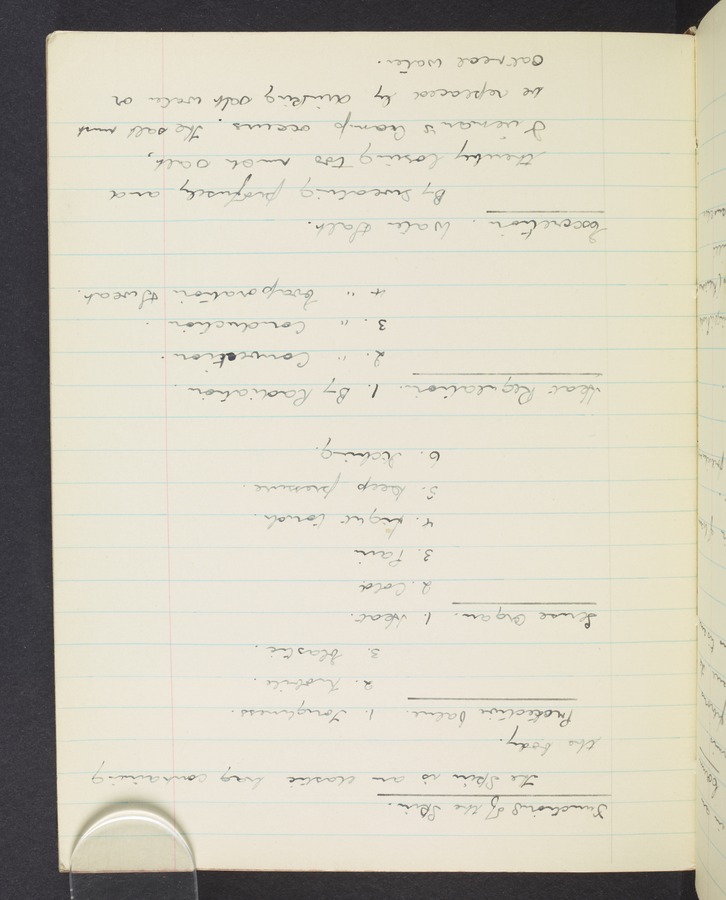 Functions of the Skin.
The Skin is an elastic bag containing
the body.
Protective value. 1. Toughness.
2. Mobile.
3. Elastic.
Sense Organ. 1. Heat.
2. Cold
3. Pain
4. Light touch.
5. Deep pressure.
6. Itching.
Heat Regulation. 1. By Radiation.
2. " Convection.
3. " Conduction.
4 " Evaporation & Sweat.
Excretion. Water & salt.
By sweating profusely and
thereby losing too much salt,
Fireman's Cramp occurs. The salt must
be replaced by drinking salt water or
oatmeal water.